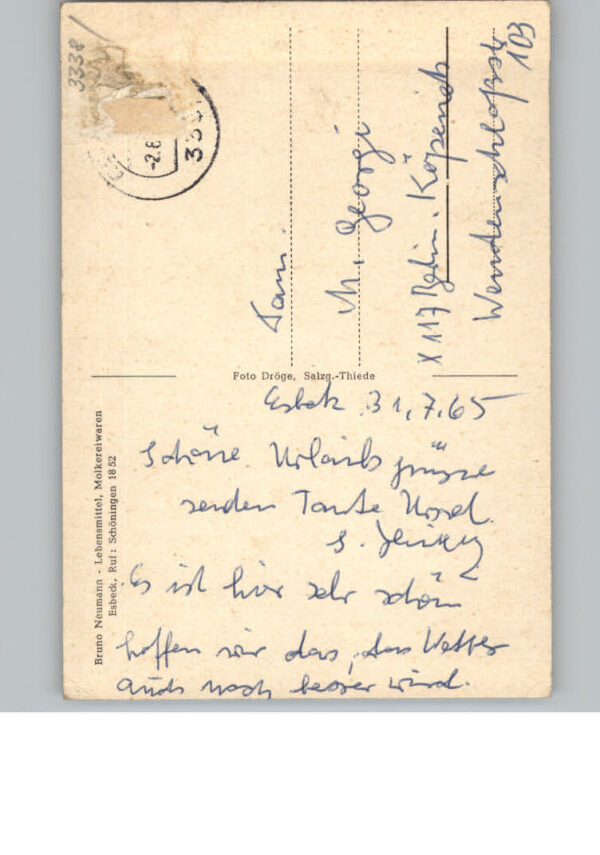 3338
-2.8
Fam.
M. Georgi
X 117 Berlin-Köpenick
Wendenschloßstr
103
Foto Dröge, Salzg.-Thiede
Bruno Neumann - Lebensmittel, Molkereiwaren
Esbeck, Ruf: Schöningen 1852
Esbek 31.7.65
Schöne Urlaubsgrüsse
senden Tante Ursel.
Es ist hier sehr schön
hoffen wir das, das Wetter
auch noch besser wird.